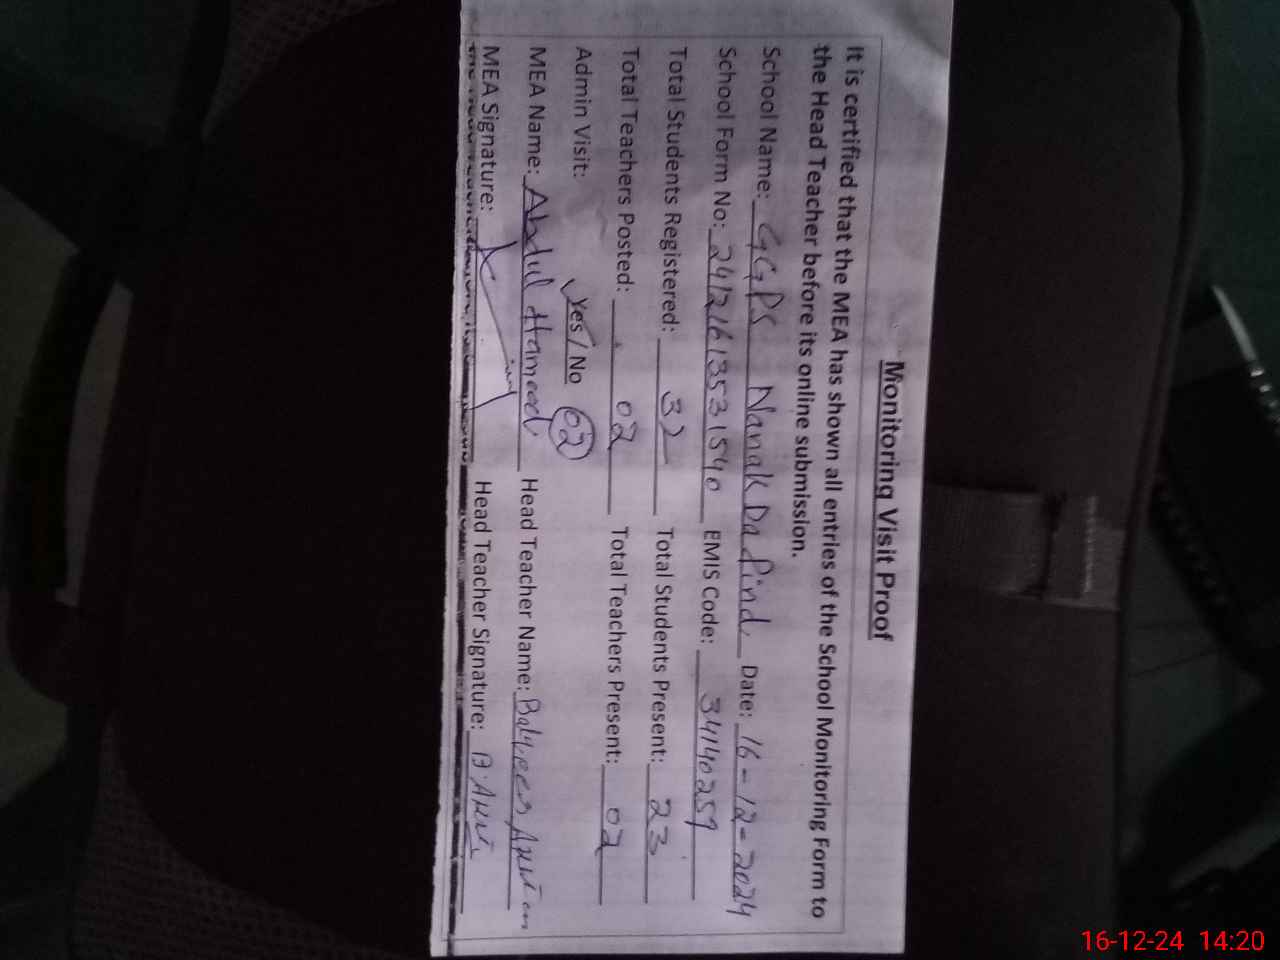 Monitoring Visit Proof
It is certified that the MEA has shown all entries of the School Monitoring Form to
the Head Teacher before its online submission.
School Name: GGPS Nanak Da Pind Date: 16-12-2024
School Form No: 24121613531540 EMIS Code: 34140259
Total Students Registered: 32 Total Students Present: 23
Total Teachers Posted: 02 Total Teachers Present: 02
Admin Visit: Yes / No 02
MEA Name: Abdul Hameed Head Teacher Name:
MEA Signature: Head Teacher Signature:
16-12-24 14:20